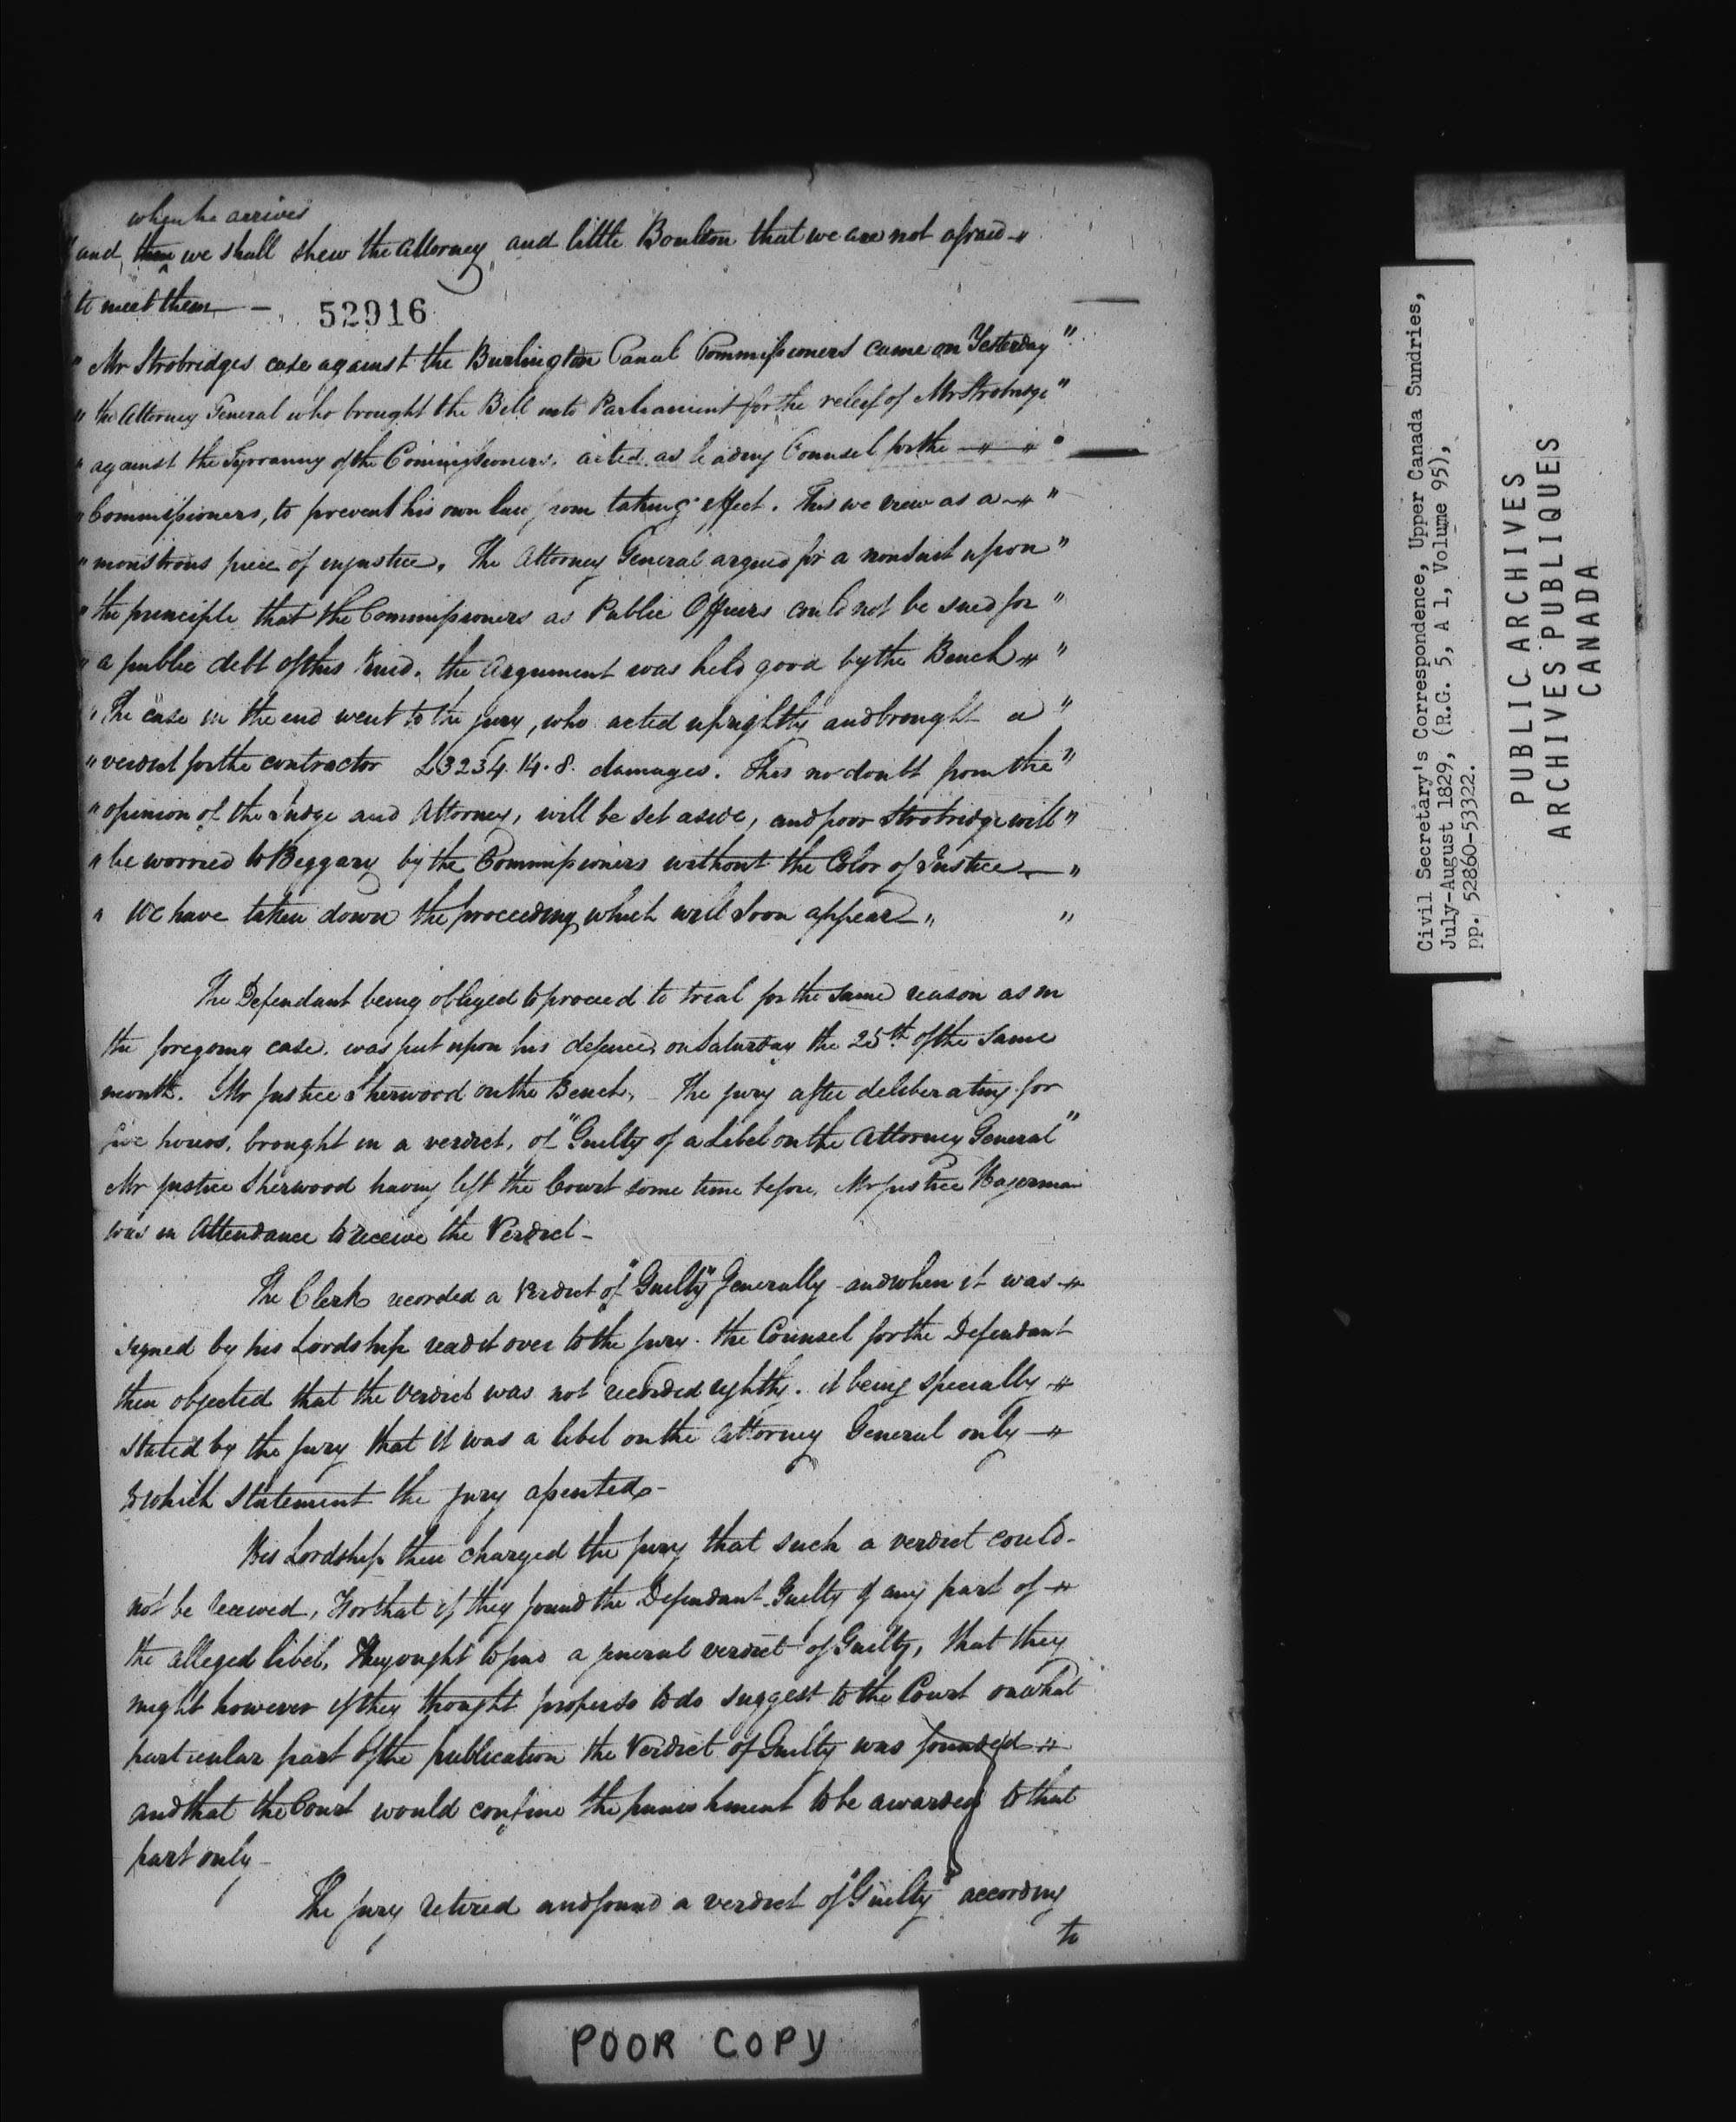 when he arrives
"and then we shall shew the Attorney and little Boulton that we are not afraid "
to meet them —
52916
" Mr Strobridges case against the Burlington Canal Commissioners came on Yesterday "
" the Attorney General who brought the Bill into Parliament for the relief of Mr Strobridge "
" against the Tyrranny of the Commissioners. acted as leading Counsel for the — "
" Commissioners, to prevent his own law from taking effect. This we view as a "
" monstrous piece of injustice. The Attorney General argued for a nonsuit upon "
" the principle that the Commissioners as Public Officers could not be sued for "
" a public debt of this kind. the Argument was held good by the Bench "
" The case in the end went to the jury, who acted uprightly and brought a "
" verdict for the contractor £3234.14.8. damages. This no doubt from the "
" opinion of the Judge and Attorney, will be set aside, and poor Strobridge will "
" be worried to Beggary by the Commissioners without the Color of Justice — "
" We have taken down the proceeding, which will soon appear " "
The Defendant being obliged to proceed to trial for the same reason as in
the foregoing case. was put upon his defence, on Saturday the 25th. of the same
month. Mr Justice Sherwood on the Bench, — The jury after deliberating for
five hours, brought in a verdict, of "Guilty of a Libel on the Attorney General"
Mr Justice Sherwood having left the Court some time before, Mr Justice Hagerman
was in Attendance to receive the Verdict —
The Clerk recorded a Verdict of "Guilty" Generally — and when it was
signed by his Lordship read it over to the jury. the Counsel for the Defendant
then objected that the verdict was not recorded rightly. it being specially
stated by the jury that it was a libel on the Attorney General only —
to which statement the jury assented —
His Lordship then charged the jury that such a verdict could
not be received, For that if they found the Defendant Guilty of any part of
the alleged libel, they ought to find a general verdict of Guilty, that they
might however if they thought proper so to do suggest to the Court on what
particular part of the publication the Verdict of Guilty was founded
and that the Court would confine the punishment to be awarded to that
part only —
The jury retired and found a verdict of "Guilty" according
to
POOR COPY
Civil Secretary's Correspondence, Upper Canada Sundries,
July-August 1829, (R.G. 5, A 1, Volume 95),
pp. 52860-53322.
PUBLIC ARCHIVES
ARCHIVES PUBLIQUES
CANADA